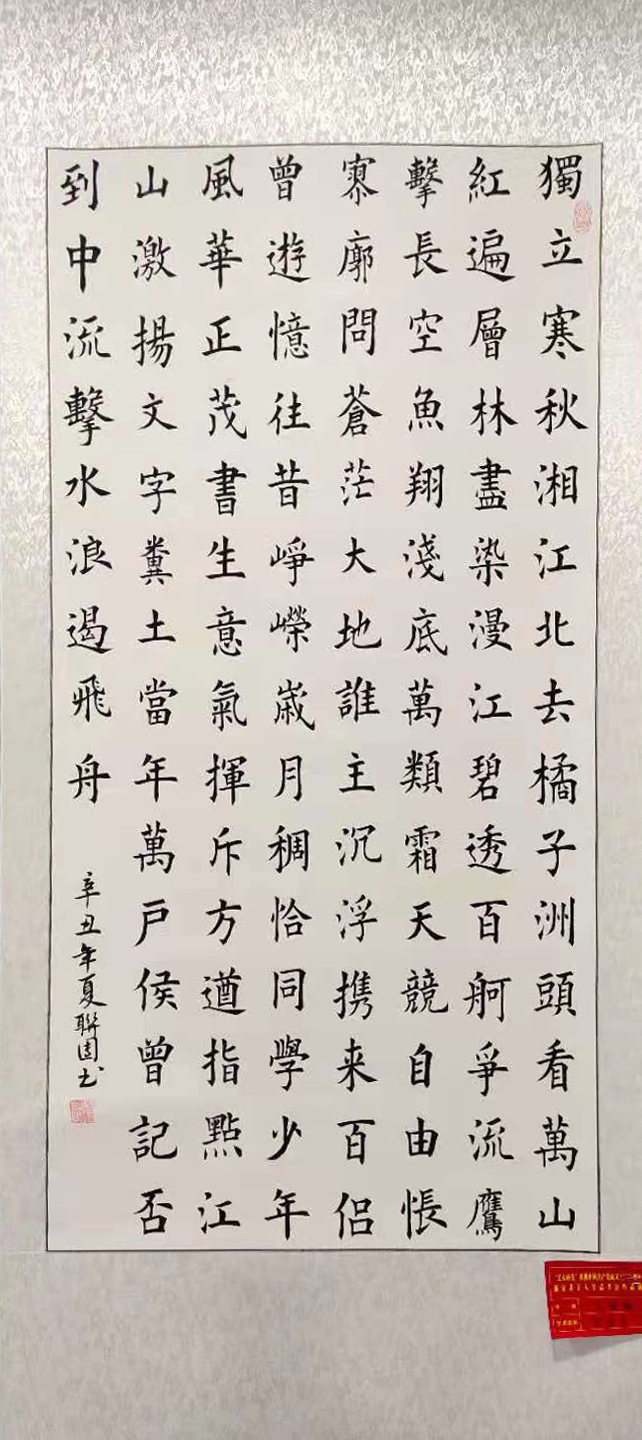 獨立寒秋湘江北去橘子洲頭看萬山
紅遍層林盡染漫江碧透百舸爭流鷹
擊長空魚翔淺底萬類霜天競自由悵
寥廓問蒼茫大地誰主沉浮携来百侣
曾遊憶往昔崢嶸崴月稠恰同學少年
風華正茂書生意氣揮斥方遒指點江
山激揚文字糞土當年萬戶侯曾記否
到中流擊水浪遏飛舟
辛丑年夏聯国书